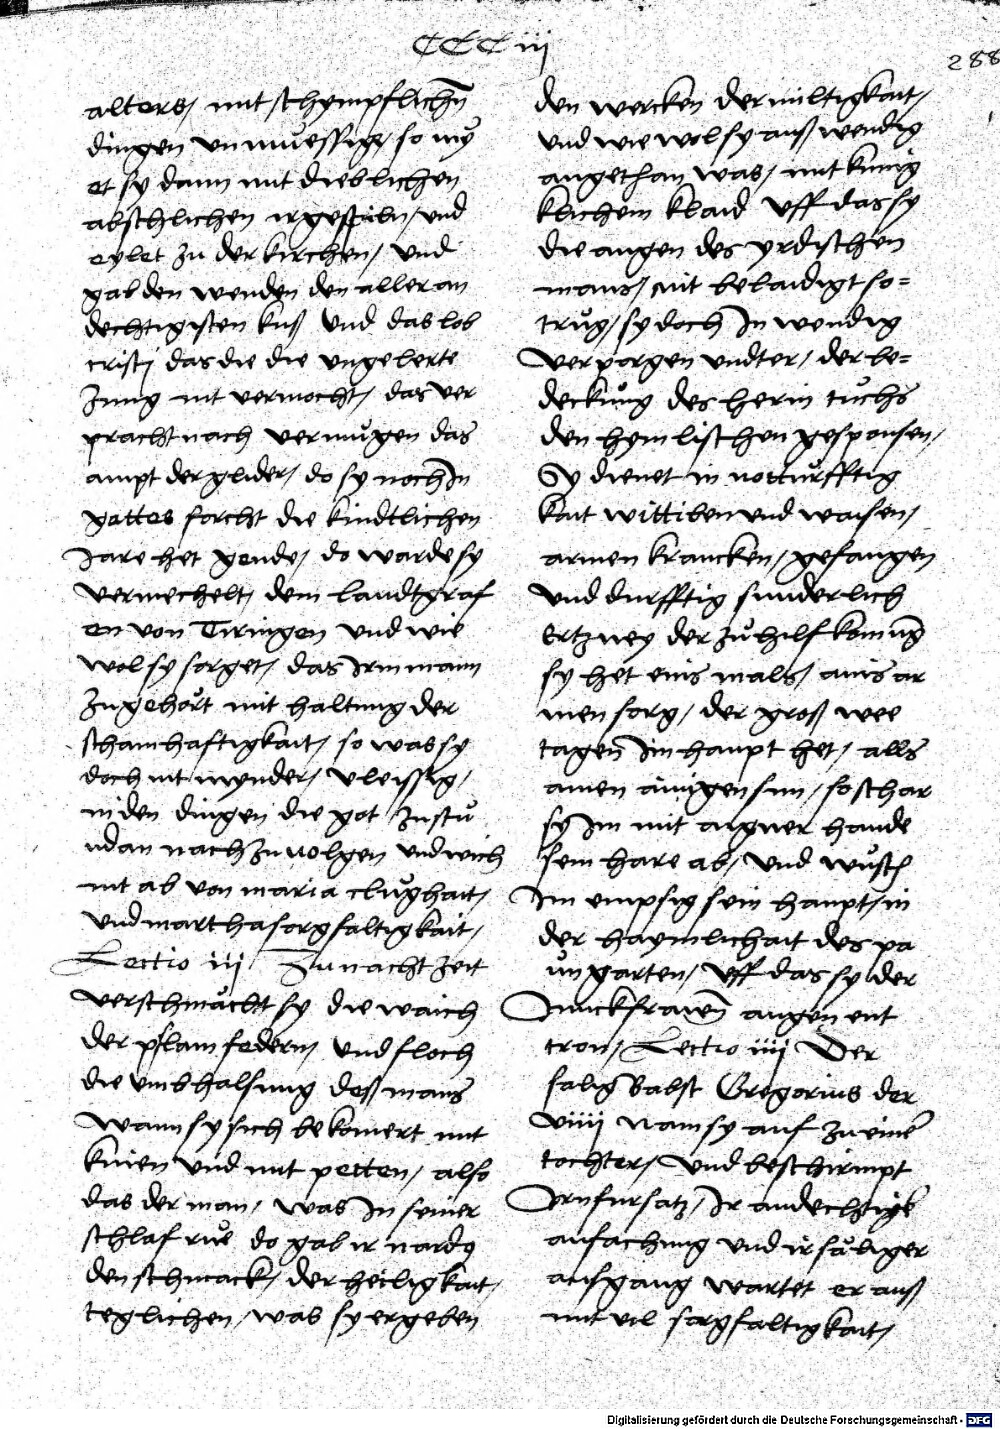 CCC iij
288
alters / mit schympflichen̄
dingen vnmuͤessig / so my
et sy dann mit dieblichen
abschlichen ir gespiln / vnd
eylet zu der kirchen / vnd
gab den wenden den aller an
dechtigisten kuß vnd das lob
cristj das die die vngelerte
zung nit vermocht / das ver
pracht nach vermuͤgen das
ampt der glider / do sy noch In
gottes forcht die kindtlichen
Jare het gende / do warde sy
vermechelt / dem landtgraf
en von Tiringen vnd wie
wol sy sorget / das Irm mann
zugehoͤrt mit haltung der
schamhaftigkait / so was sy
doch nit mynder / vleissig /
in den dingen die got zustuͤ
ndan nach zu uolgen vnd wich
nit ab von maria cluͦghait /
vnd martha sorgfaltigkait /
Lectio iij Zu nacht zeit
verschmaͤcht sy die waich
der pflam federn / vnd floch
die vmbhalsung deß mans
wann sy sich bekomert mit
knien vnd mit petten / also
das der man / was In seiner
schlaf ruͤe do gab ir nardq
den schmack / der heiligkait /
teglichen / was sy ergeben
den wercken der miltigkait /
vnd wie wol sy auß wendig
angethan was / mit kunig
klichem klaid vff das sy
die augen des yrdischen
mans / nit belaidigt so=
truͦg / sy doch In wendig
verporgen vndter / der be=
deckung des herin tuͦchs
den hymlischen gesponsen /
Sy dienet in notturfftig
kait wittiben vnd waisen /
armen krancken / gefangen
vnd durfftig sunderlich
Ertzney der zuͦ hilf komūg
sy het eins mals / ains ar
men sorg / der groß wee
tagen Im haupt het / alls
amen ainigen sun / so schar
sy Im mit aigner hande
sein hare ab / vnd wuͦsch
Im empsig sein haupt / in
der haymlichait des pa
uͦngarten / vff das sy der
Junckfrawen̄ augen ent
tron / Lectio iiij Der
salig Babst Gregorius der
viiij nam sy auf zu einer
tochter / vnd beschirmpt
Irn fursatz / Ir andechtige
anfachung vnd ir saͤliger
ausgang wartet er auß
mit vil sorgfaltigkait /
Digitalisierung gefördert durch die Deutsche Forschungsgemeinschaft - DFG